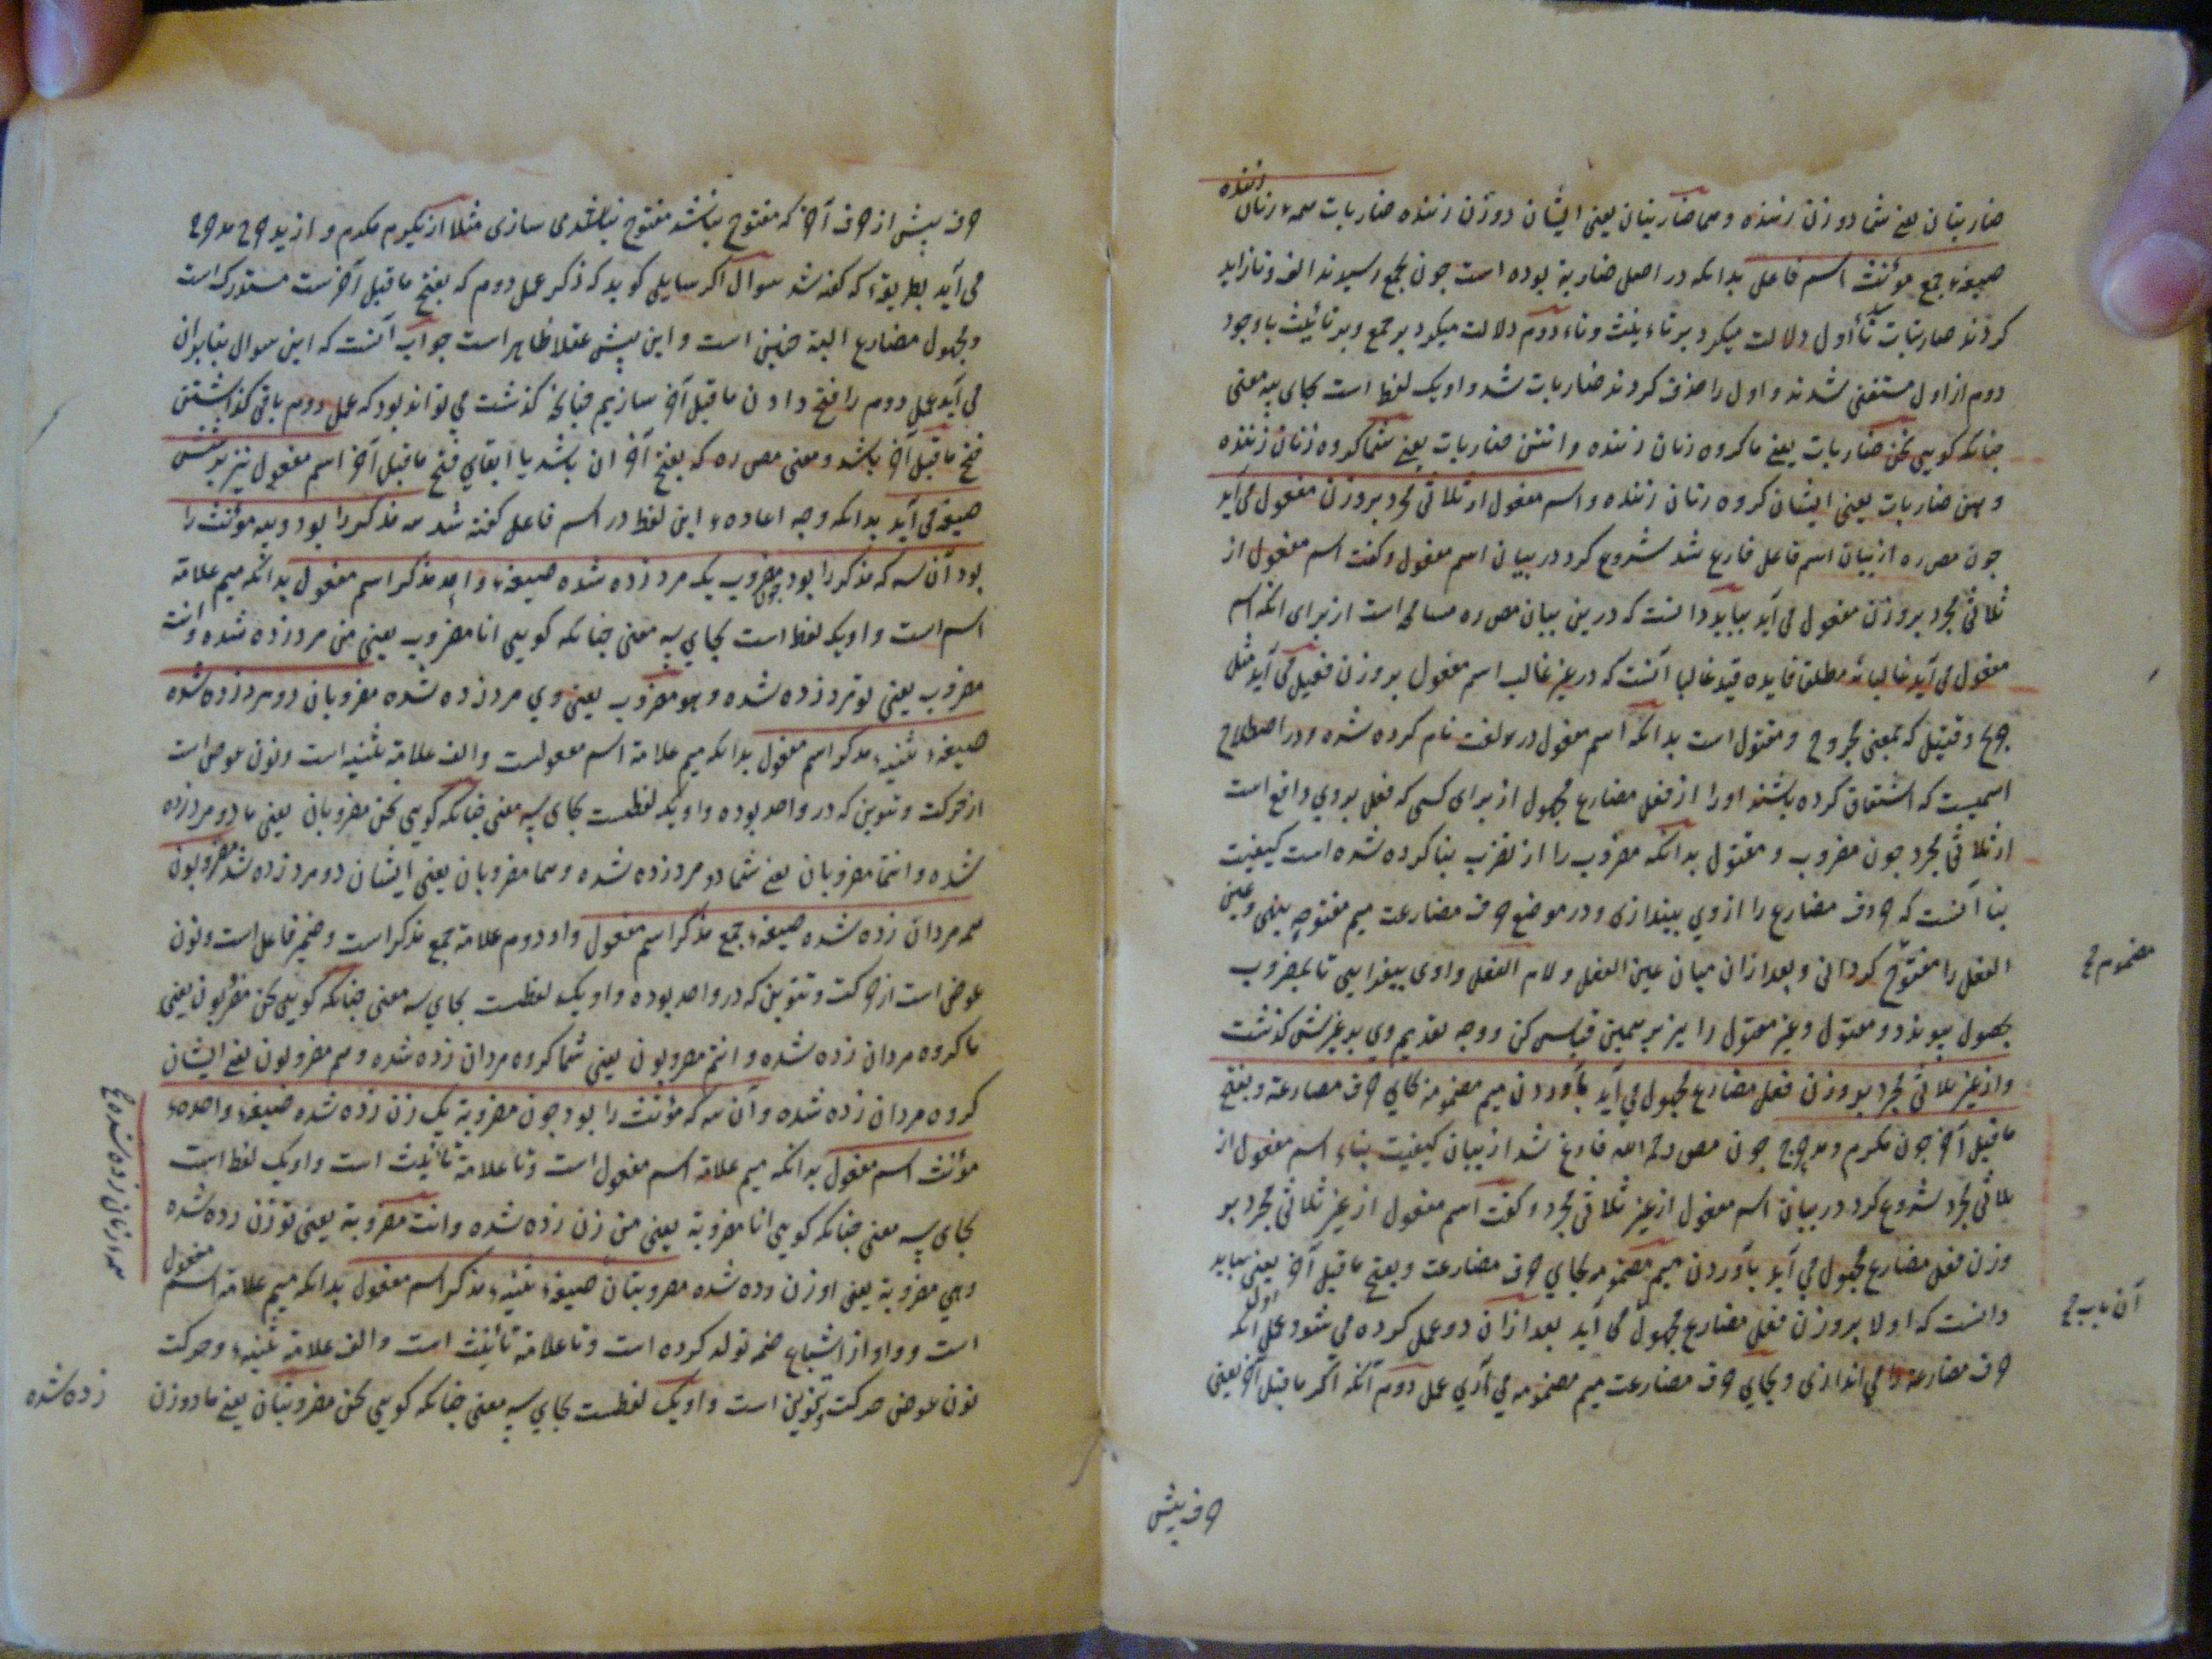 زننده
ضاربتان یعنی شما دو زن زننده و هما ضاربتان یعنی ایشان دو زن زننده ضاربات همه زنان
صیغهٔ جمع مؤنث اسم فاعل بدانکه در اصل ضاربة بوده است چون بجمع رسیدند الف و تا زاید
کردند ضاربتات شد تا اول دلالت میکرد بر تانیث و تاء دوم دلالت میکرد بر جمع و بر تانیث باوجود
دوم از اول مستغنی شدند و اول را حذف کردند ضاربات شد و او یک لفظ است بجای سه معنی
چنانکه کویی نحن ضاربات یعنی ما کروه زنان زننده و انتن ضاربات یعنی شما کروه زنان زننده
و هن ضاربات یعنی ایشان کروه زنان زننده و اسم مفعول از ثلاثی مجرد بر وزن مفعول می آید
چون مص ره از بیان اسم فاعل فارغ شد شروع کرد در بیان اسم مفعول و کفت اسم مفعول از
ثلاثی مجرد بر وزن مفعول می آید بباید دانست که درین بیان مص ره مسامحه است از برای انکه اسم
مفعول می آید غالبا نه مطلقا فایده قید غالبا آنست که در غیر غالب اسم مفعول بر وزن فعیل می آید مثل
جریح و قتیل که بمعنی مجروح و مقتول است بدانکه اسم مفعول در لغت نام کرده شده و در اصطلاح
اسمیست که اشتقاق کرده باشند او را از فعل مضارع مجهول از برای کسی که فعل بر وی واقع است
از ثلاثی مجرد چون مضروب و مقتول بدانکه مضروب را از یضرب بنا کرده شده است کیفیت
بنا آنست که حرف مضارع را از وی بیندازی و در موضع حرف مضارعت میم مفتوحه بنهی و عین
الفعل را مفتوح کردانی و بعد ازان میان عین الفعل و لام الفعل واوی بیفزایی تا بمضروب
مضموم ح
بحصول پیوندد و مقتول و غیر مقتول را نیز برهمین قیاس کن و وجه تقدیم وی بر غیرش کذشت
و از غیر ثلاثی مجرد بر وزن فعل مضارع مجهول می آید بآوردن میم مضمومه بجای حرف مضارعة و بفتح
ماقبل آخر چون مکرم و مدحرج چون مص رحمه الله فارغ شد از بیان کیفیت بناء اسم مفعول از
ثلاثی مجرد شروع کرد در بیان اسم مفعول از غیر ثلاثی مجرد و کفت اسم مفعول از غیر ثلاثی مجرد بر
وزن فعل مضارع مجهول می آید بآوردن میم مضمومه بجای حرف مضارعت و بفتح ماقبل آخر یعنی بباید
دانست که اولا بر وزن فعل مضارع مجهول می آید بعد ازان دو عمل کرده می شود عمل اول آنکه
آن باب ح
حرف مضارعة را می اندازی و بجای حرف مضارعت میم مضمومه می آری عمل دوم آنکه اکر ماقبل آخر یعنی
حرف پیش
حرف پیش از حرف آخر که مفتوح نباشد مفتوح می سازی مثلا از یکرم مکرم و از یدحرج مدحرج
می آید بطریقی که کفته شد سوال اکر سایلی کوید که ذکر عمل دوم که بفتح ماقبل آخرست مستدرکست
و مجهول مضارع البته چنین است و این پیش عقلا ظاهر است جواب آنست که این سوال بنا بران
می آید عمل دوم را فتح دادن ماقبل آخر سازیم چنانچه کذشت می تواند بود که عمل دوم باقی کذاشتن
فتح ماقبل آخر باشد و معنی مص ره که بفتح آخر ان باشد یا ابقای فتح ماقبل آخر اسم مفعول نیز بر شش
صیغه می آید بدانکه وجه اعاده این لفظ در اسم فاعل کفته شد سه مذکر را بود و سه مؤنث را
بود آن سه که مذکر را بود چون مضروب یک مرد زده شده صیغهٔ واحد مذکر اسم مفعول بدانکه میم علامة
اسم است و او یک لفظ است بجای سه معنی چنانکه کویی انا مضروب یعنی من مرد زده شده و انت
مضروب یعنی تو مرد زده شده و هو مضروب یعنی وی مرد زده شده مضروبان دو مرد زده شده
صیغهٔ تثنیهٔ مذکر اسم مفعول بدانکه میم علامة اسم مفعولست و الف علامة تثنیه است و نون عوض است
از حرکت و تنوین که در واحد بوده و او یک لفظست بجای سه معنی چنانکه کویی نحن مضروبان یعنی ما دو مرد زده
شده و انتما مضروبان یعنی شما دو مرد زده شده و هما مضروبان یعنی ایشان دو مرد زده شده مضروبون
همه مردان زده شده صیغهٔ جمع مذکر اسم مفعول واو دوم علامة جمع مذکر است و ضمیر فاعل است و نون
عوض است از حرکت و تنوین که در واحد بوده و او یک لفظست بجای سه معنی چنانکه کویی نحن مضروبون یعنی
ما کروه مردان زده شده و انتم مضروبون یعنی شما کروه مردان زده شده و هم مضروبون یعنی ایشان
کروه مردان زده شده و آن سه که مؤنث را بود چون مضروبة یک زن زده شده صیغهٔ واحدهٔ
مؤنث اسم مفعول بدانکه میم علامة اسم مفعول است و تا علامة تانیث است و او یک لفظ است
بجای سه معنی چنانکه کویی انا مضروبة یعنی من زن زده شده و انت مضروبة یعنی تو زن زده شده
و هی مضروبة یعنی او زن زده شده مضروبتان صیغهٔ تثنیهٔ مذکر اسم مفعول بدانکه میم علامة اسم مفعول
است و واو از اشباع ضمه تولد کرده است و تا علامة تانیث است و الف علامة تثنیه و حرکت
نون عوض حرکت و تنوین است و او یک لفظست بجای سه معنی چنانکه کویی نحن مضروبتان یعنی ما دو زن
زده شده